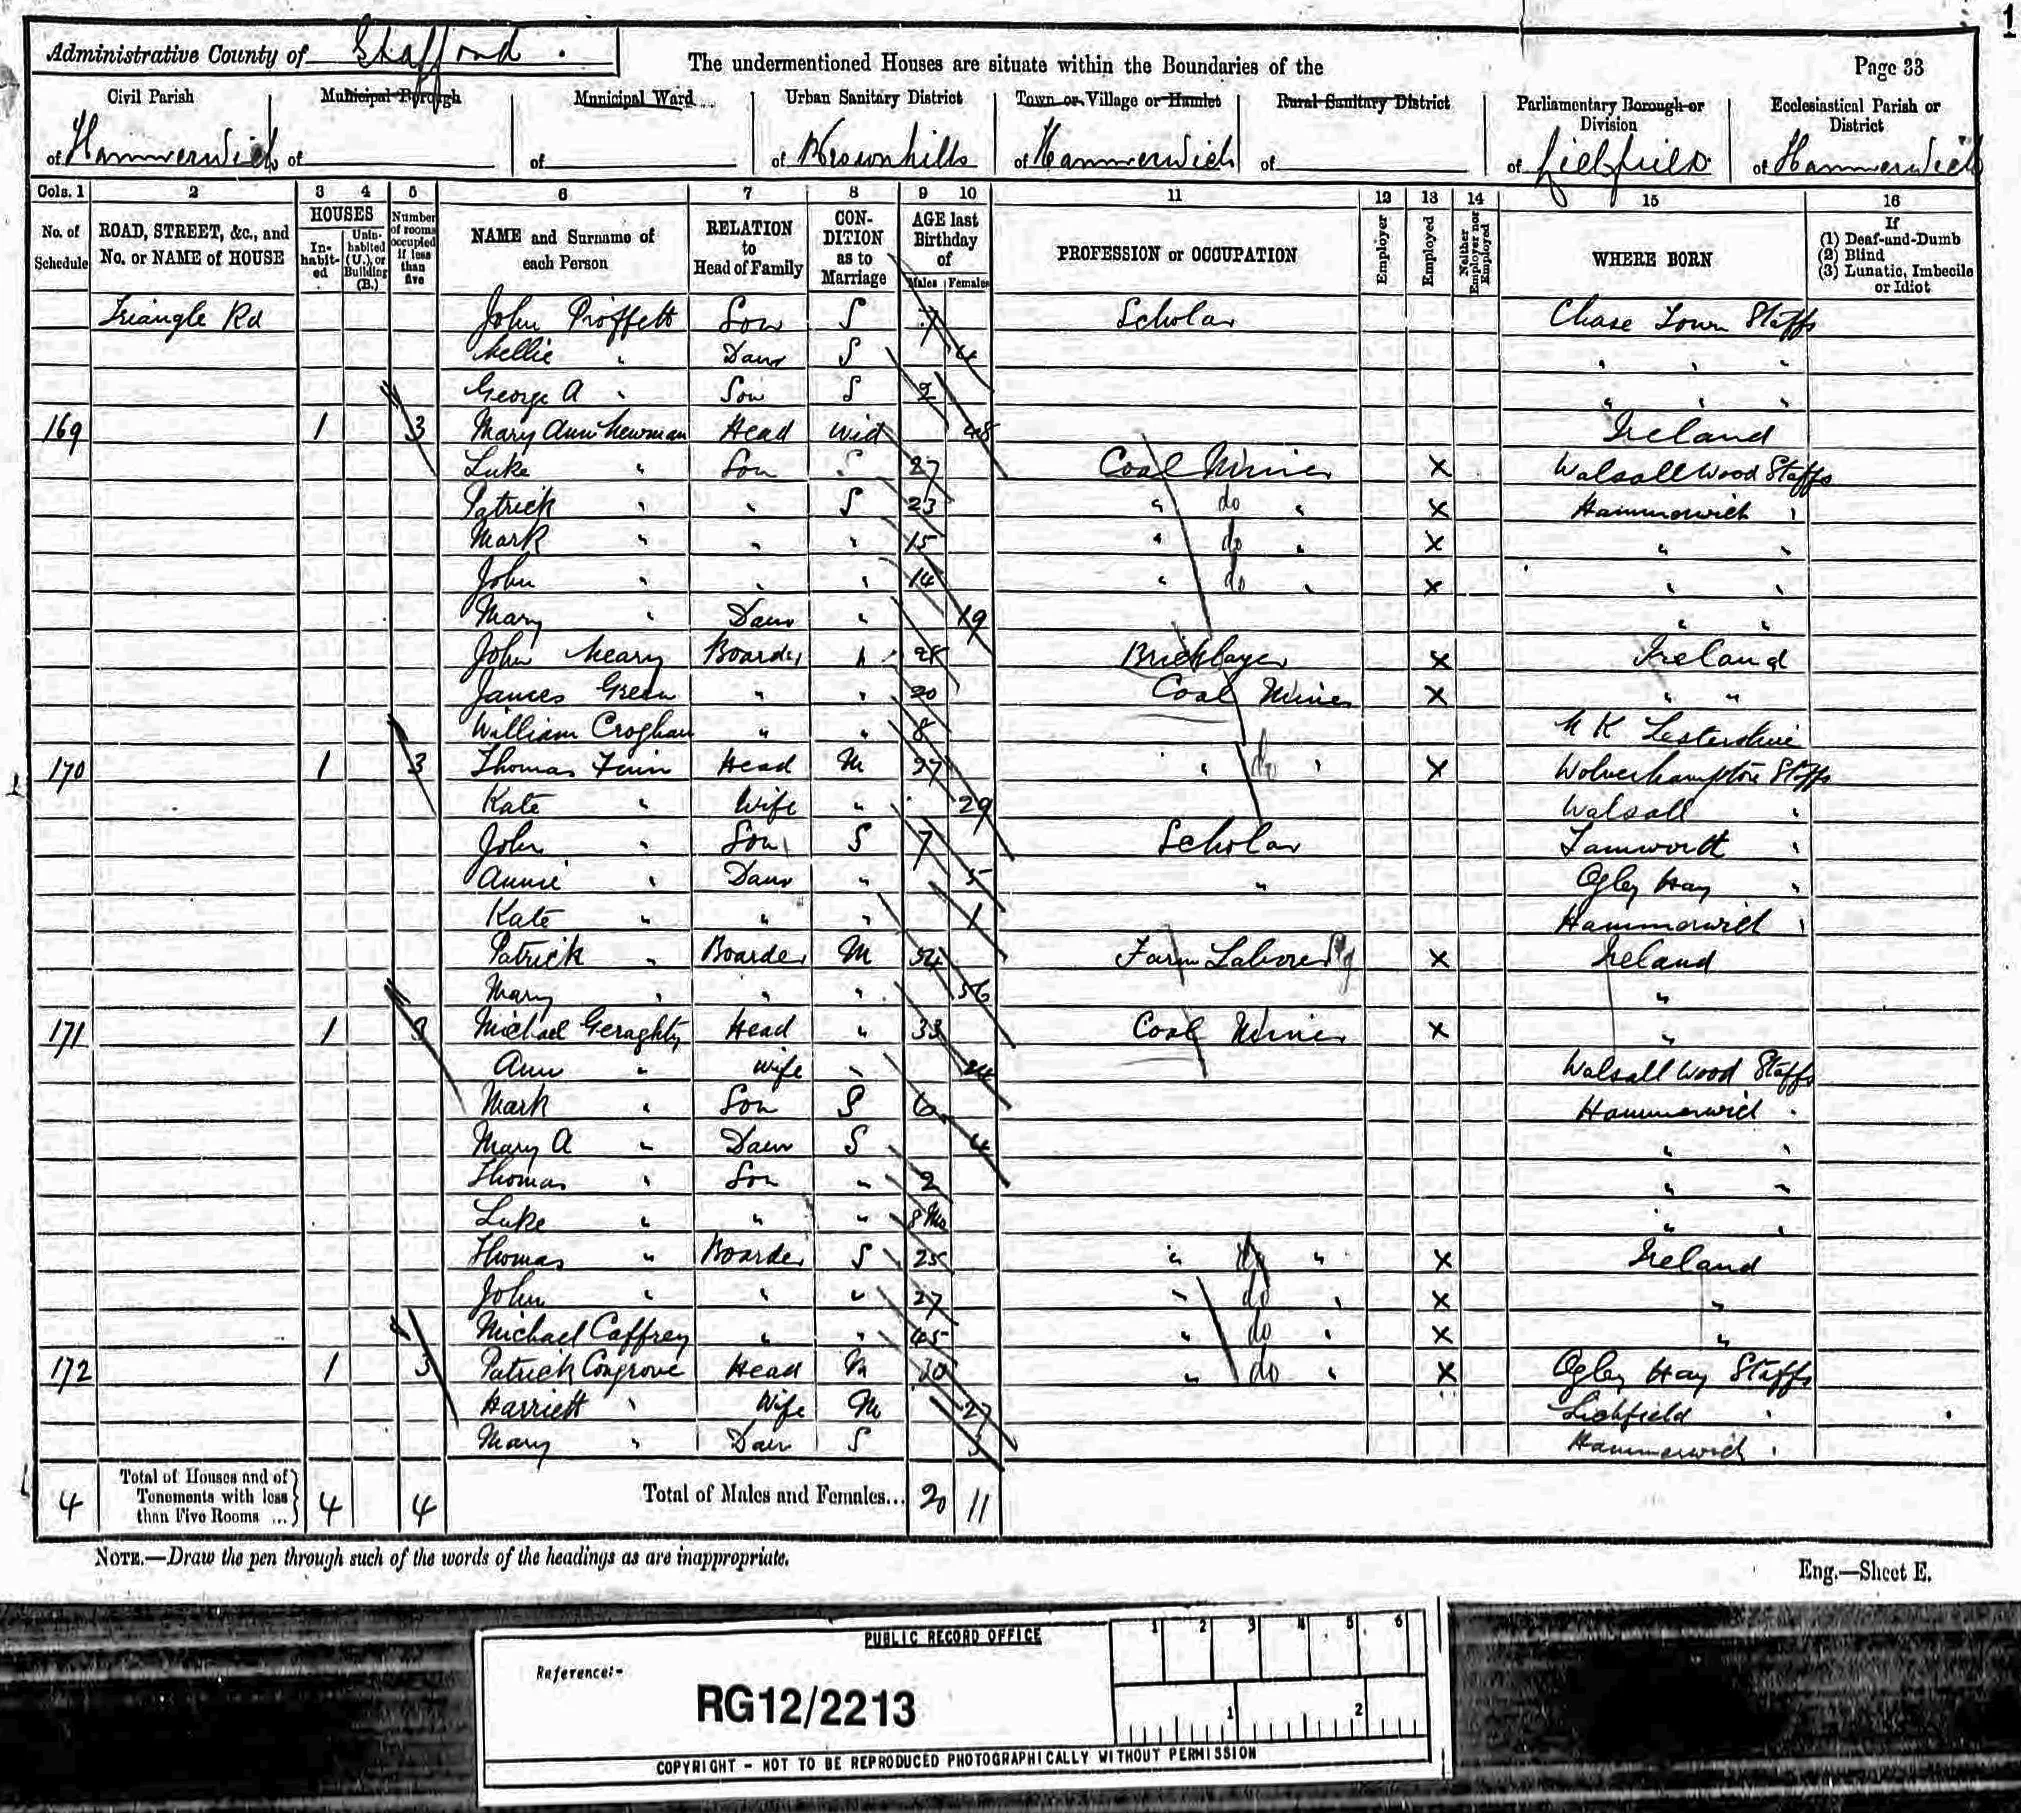 1
Administrative County of Stafford.
The undermentioned Houses are situate within the Boundaries of the
Page 33
Civil Parish
of Hammerwich
Municipal Borough
of
Municipal Ward
of
Urban Sanitary District
of Brownhills
Town or Village or Hamlet
of Hammerwich
Rural Sanitary District
of
Parliamentary Borough or Division
of Lichfield
Ecclesiastical Parish or District
of Hammerwich
Cols. 1 2 3 4 5 6 7 8 9 10 11 12 13 14 15 16
No. of Schedule
ROAD, STREET, &c., and No. or NAME of HOUSE
HOUSES
Inhabited
Uninhabited (U.), or Building (B.)
Number of rooms occupied if less than five
NAME and Surname of each Person
RELATION to Head of Family
CONDITION as to Marriage
AGE last Birthday of
Males Females
PROFESSION or OCCUPATION
Employer
Employed
Neither Employer nor Employed
WHERE BORN
If
(1) Deaf-and-Dumb
(2) Blind
(3) Lunatic, Imbecile or Idiot
Triangle Rd John Proffett Son S 7 Scholar Chase Town Staffs
Nellie " Daur S 4 " " "
George A " Son S 2 " " "
169 1 3 Mary Ann Newman Head Wid 48 Ireland
Luke " Son S 27 Coal Miner X Walsall Wood Staffs
Patrick " " S 23 " do " X Hammerwich "
Mark " " " 15 " do " X " "
John " " " 14 " do " X " "
Mary " Daur " 19 " "
John Neary Boarder " 28 Bricklayer X Ireland
James Green " " 20 Coal Miner X " "
William Croghan " " 8 N K Lestershire
170 1 3 Thomas Finn Head M 27 " do " X Wolverhampton Staffs
Kate " Wife " 29 Walsall "
John " Son S 7 Scholar Tamworth "
Annie " Daur " 5 " Ogley Hay "
Kate " " " 1 Hammerwich "
Patrick " Boarder M 54 Farm Laborer X Ireland
Mary " " " 56 "
171 1 3 Michael Geraghty Head " 33 Coal Miner X "
Ann " Wife " 24 Walsall Wood Staffs
Mark " Son S 6 Hammerwich "
Mary A " Daur S 4 " "
Thomas " Son " 2 " "
Luke " " " 8 Mo " "
Thomas " Boarder S 25 " do " X Ireland
John " " " 27 " do " X "
Michael Caffrey " " 45 " do " X "
172 1 3 Patrick Congrove Head M 30 " do " X Ogley Hay Staffs
Harriett " Wife M 27 Lichfield "
Mary " Daur S 3 Hammerwich "
4 Total of Houses and of Tenements with less than Five Rooms ... 4 4 Total of Males and Females... 20 11
NOTE.—Draw the pen through such of the words of the headings as are inappropriate.
Eng.—Sheet E.
PUBLIC RECORD OFFICE
1 2 3 4 5 6
Reference:-
RG12/2213
1 2
COPYRIGHT - NOT TO BE REPRODUCED PHOTOGRAPHICALLY WITHOUT PERMISSION